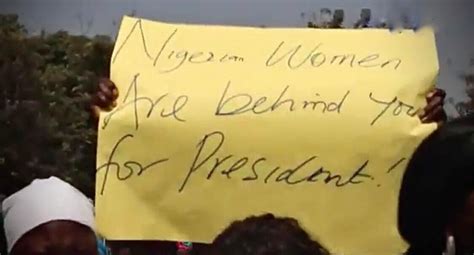 Nigerian Women
Are behind You
for President!